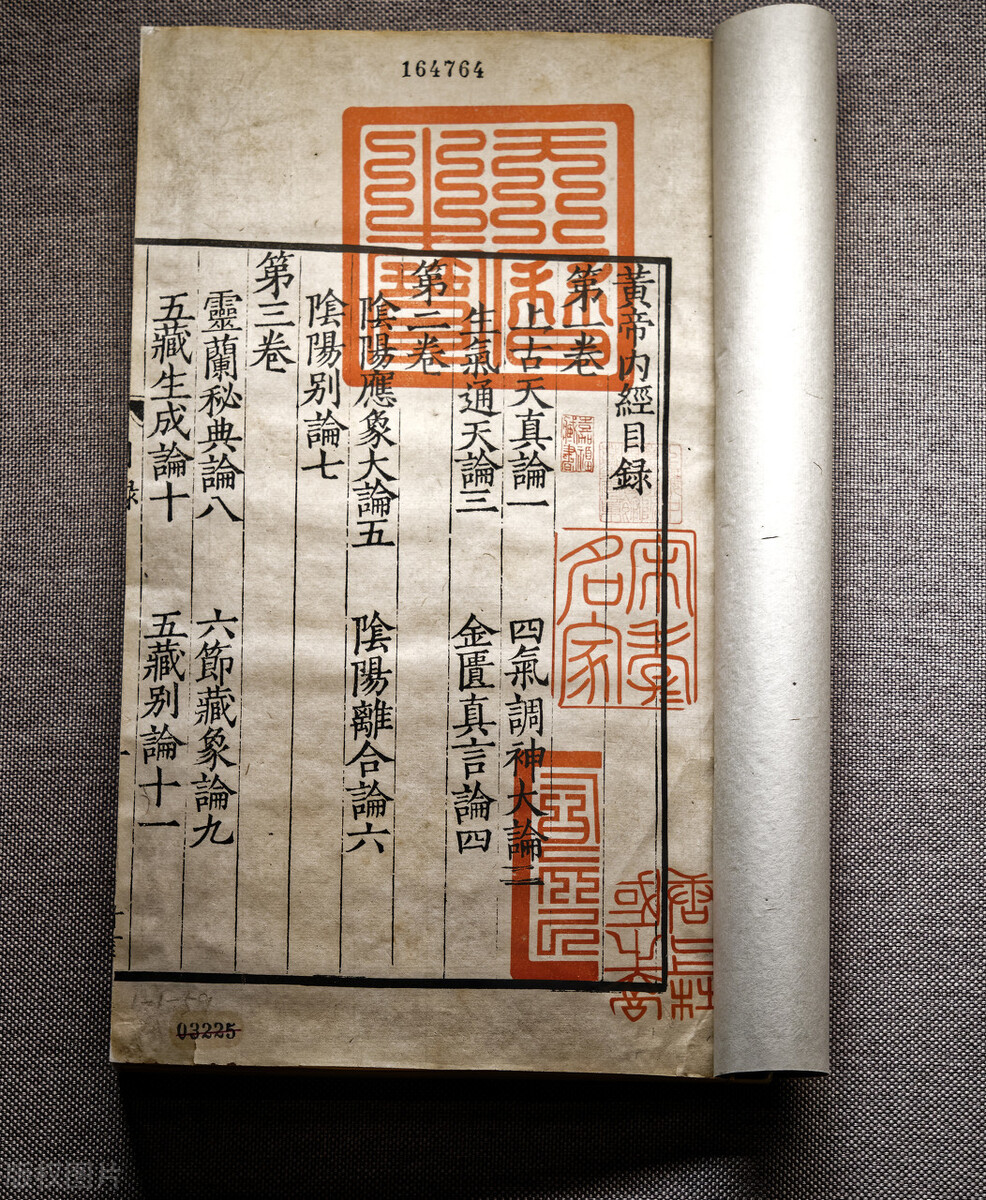 164764
黃帝内經目録
第一卷
上古天真論一 四氣調神大論二
生氣通天論三 金匱真言論四
第二卷
陰陽應象大論五 陰陽離合論六
陰陽别論七
第三卷
靈蘭秘典論八 六節藏象論九
五藏生成論十 五藏别論十一
録
嘉禮
藏書
宋孝
名家
03225
版权图片